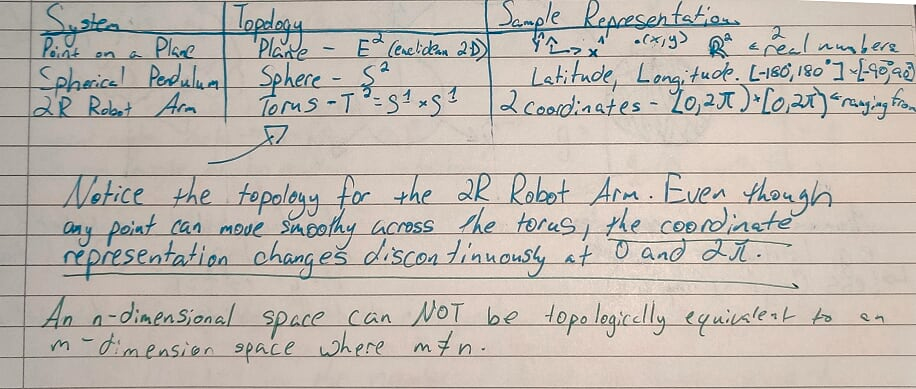 System Topology Sample Representation
Point on a Plane Plane - E² (euclidean 2D) ŷ x̂ .(x,y) ℝ² ← 2 real numbers
Spherical Pendulum Sphere - S² Latitude, Longitude. [-180°,180°]×[-90°,90°]
2R Robot Arm Torus - T² = S¹ × S¹ 2 coordinates - [0,2π)×[0,2π) ← ranging from
Notice the topology for the 2R Robot Arm. Even though
any point can move smoothy across the torus, the coordinate
representation changes discontinuously at 0 and 2π.
An n-dimensional space can NOT be topologically equivalent to an
m-dimension space where m≠n.